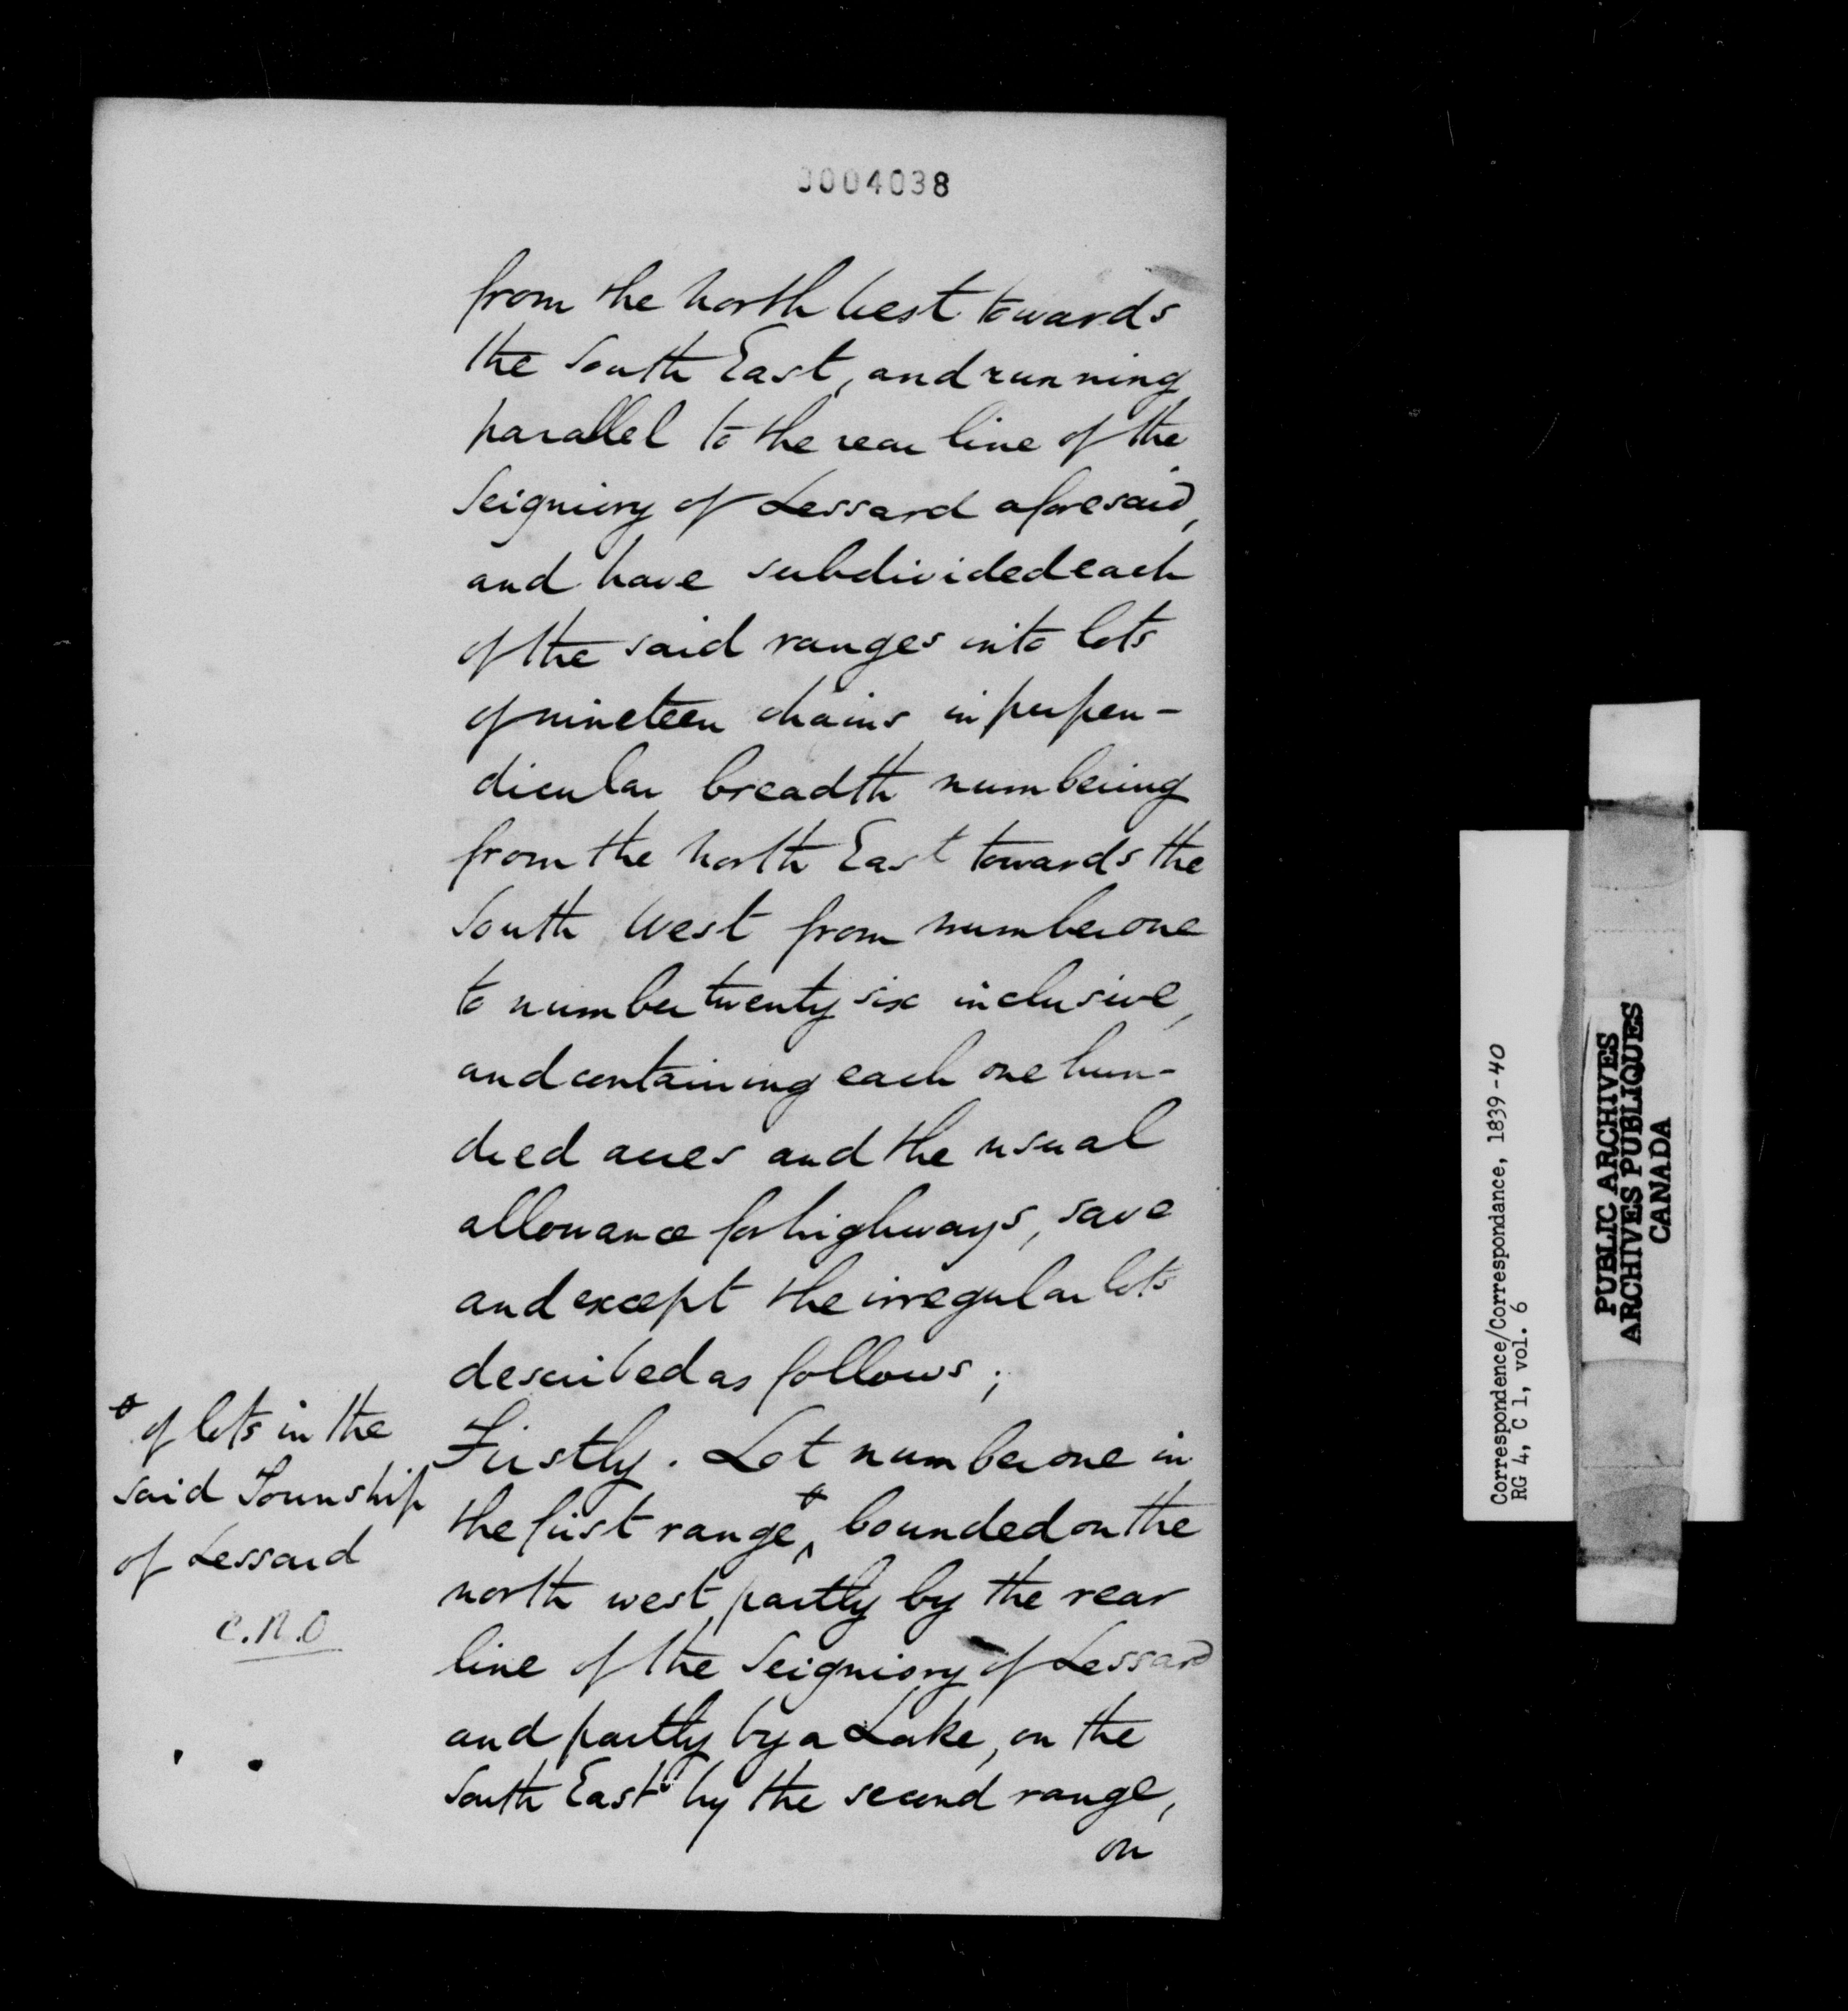 0004038
from the North West towards
the South East, and running
parallel to the rear line of the
Seigniory of Lessard aforesaid,
and have subdivided each
of the said ranges into lots
of nineteen chains in perpen-
dicular breadth numbering
from the North East towards the
South West from number one
to number twenty six inclusive,
and containing each one hun-
dred acres and the usual
allowance for highways, save
and except the irregular lots
described as follows;
Firstly. Lot number one in
the first range ^, bounded on the
north west, partly by the rear
line of the Seigniory of Lessard
and partly by a Lake, on the
South East by the second range,
on
of lots in the
said Township
of Lessard
C.R.O
Correspondence/Correspondance, 1839-40
RG 4, C 1, vol. 6
PUBLIC ARCHIVES
ARCHIVES PUBLIQUES
CANADA